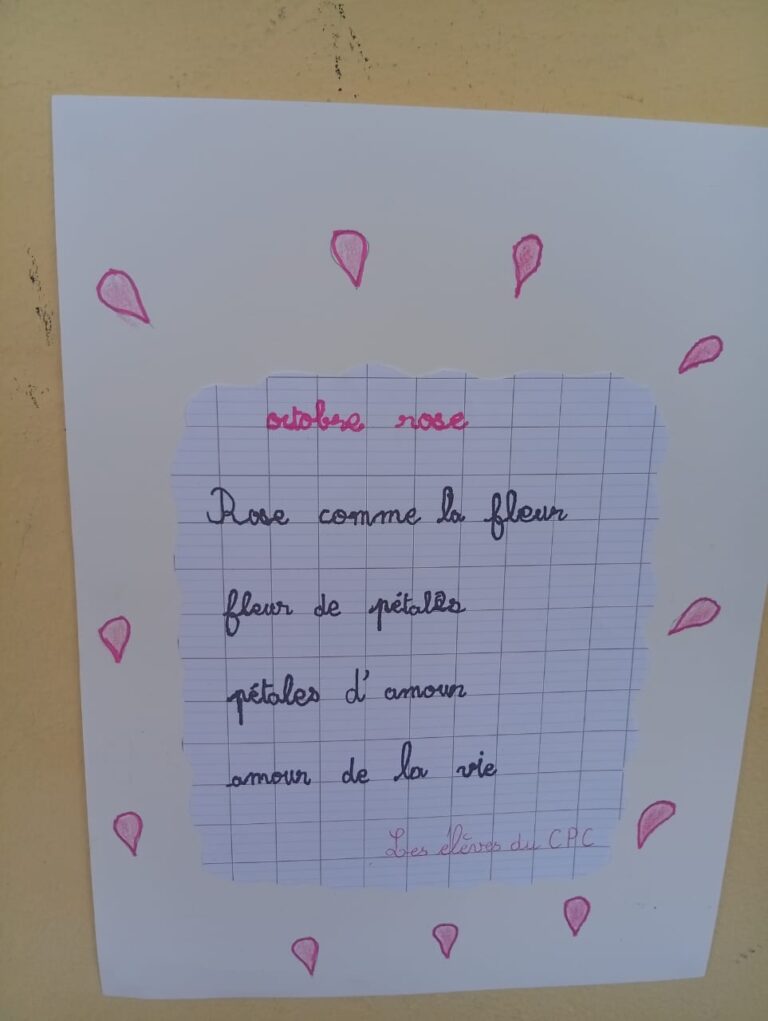 octobre rose
Rose comme la fleur
fleur de pétales
pétales d'amour
amour de la vie
Les élèves du CPC